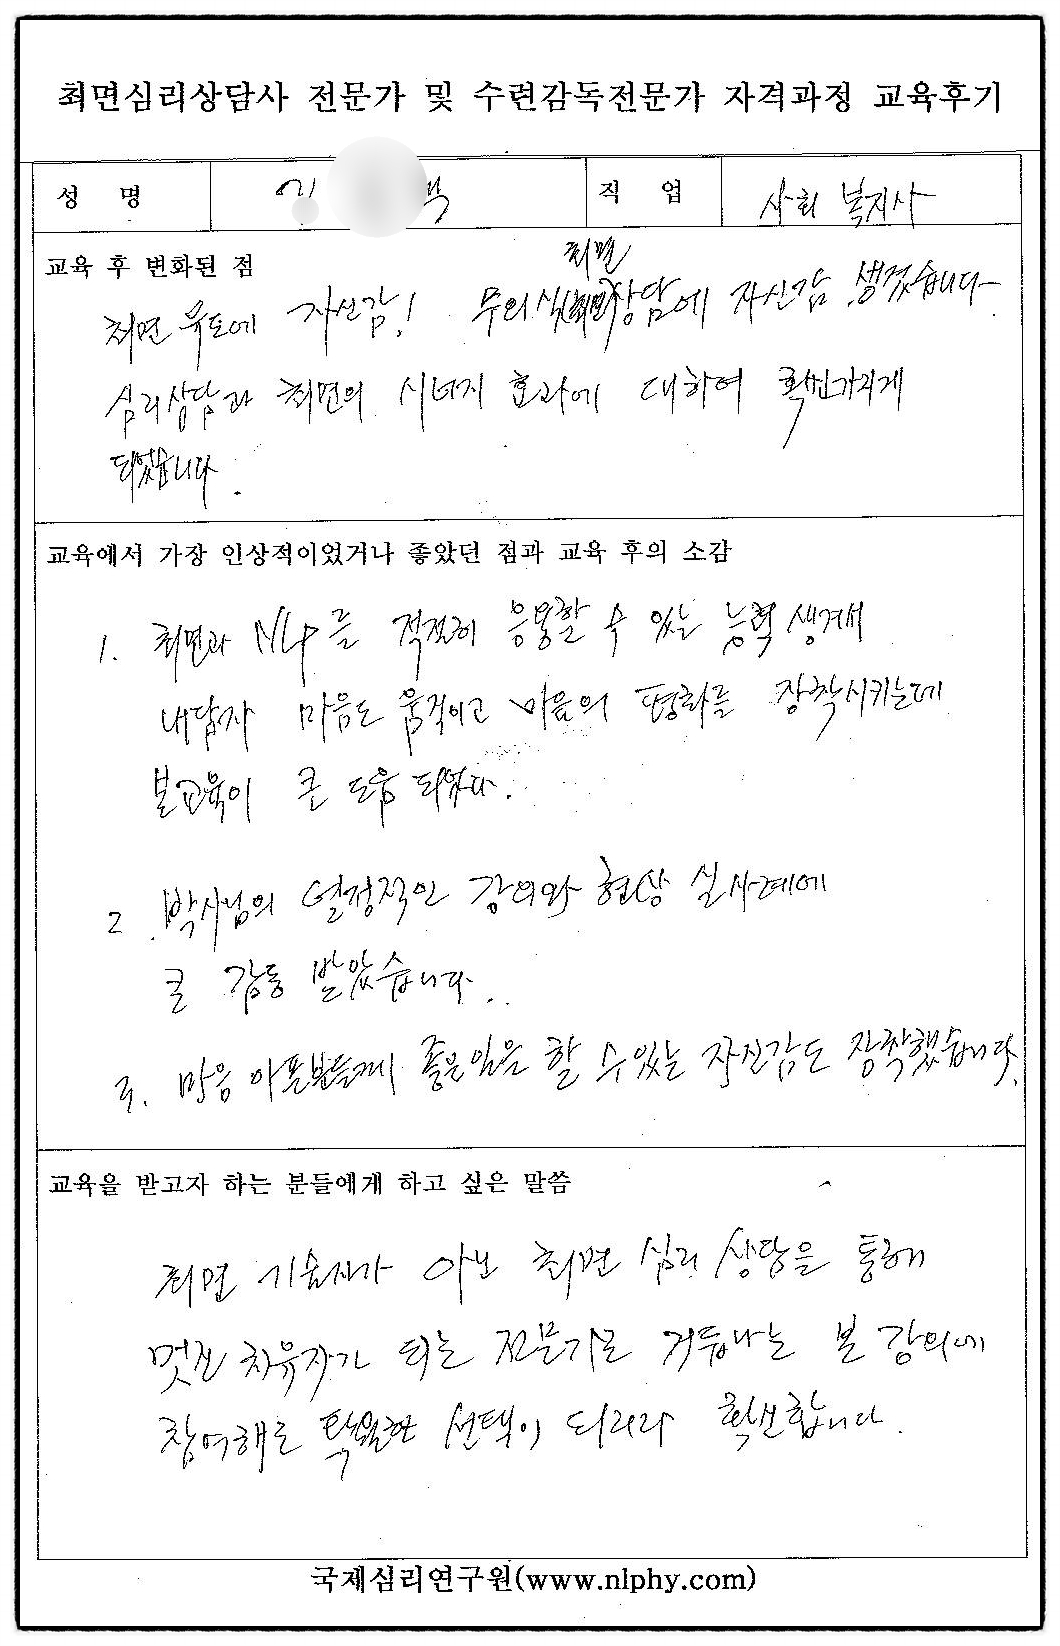 최면심리상담사 전문가 및 수련감독전문가 자격과정 교육후기
성 명
직 업 사회 복지사
교육 후 변화된 점
최면
최면 유도에 자신감! 무의식(최면)상담에 자신감 생겼습니다
심리상담과 최면의 시너지 효과에 대하여 확신가지게
되었습니다.
교육에서 가장 인상적이었거나 좋았던 점과 교육 후의 소감
1. 최면과 NLP를 적절히 응용할 수 있는 능력 생겨서
내담자 마음도 움직이고 마음의 평화를 장착시키는데
본교육이 큰 도움 되었다.
2. 박사님의 열정적인 강의와 현상 실사례에
큰 감동 받았습니다..
3. 마음 아픈분들께 좋은일을 할 수 있는 자신감도 장착했습니다.
교육을 받고자 하는 분들에게 하고 싶은 말씀
최면 기술자가 아닌 최면 심리 상담을 통해
멋진 치유자가 되는 전문가로 거듭나는 본 강의에
참여해로 탁월한 선택이 되리라 확신합니다.
국제심리연구원(www.nlphy.com)